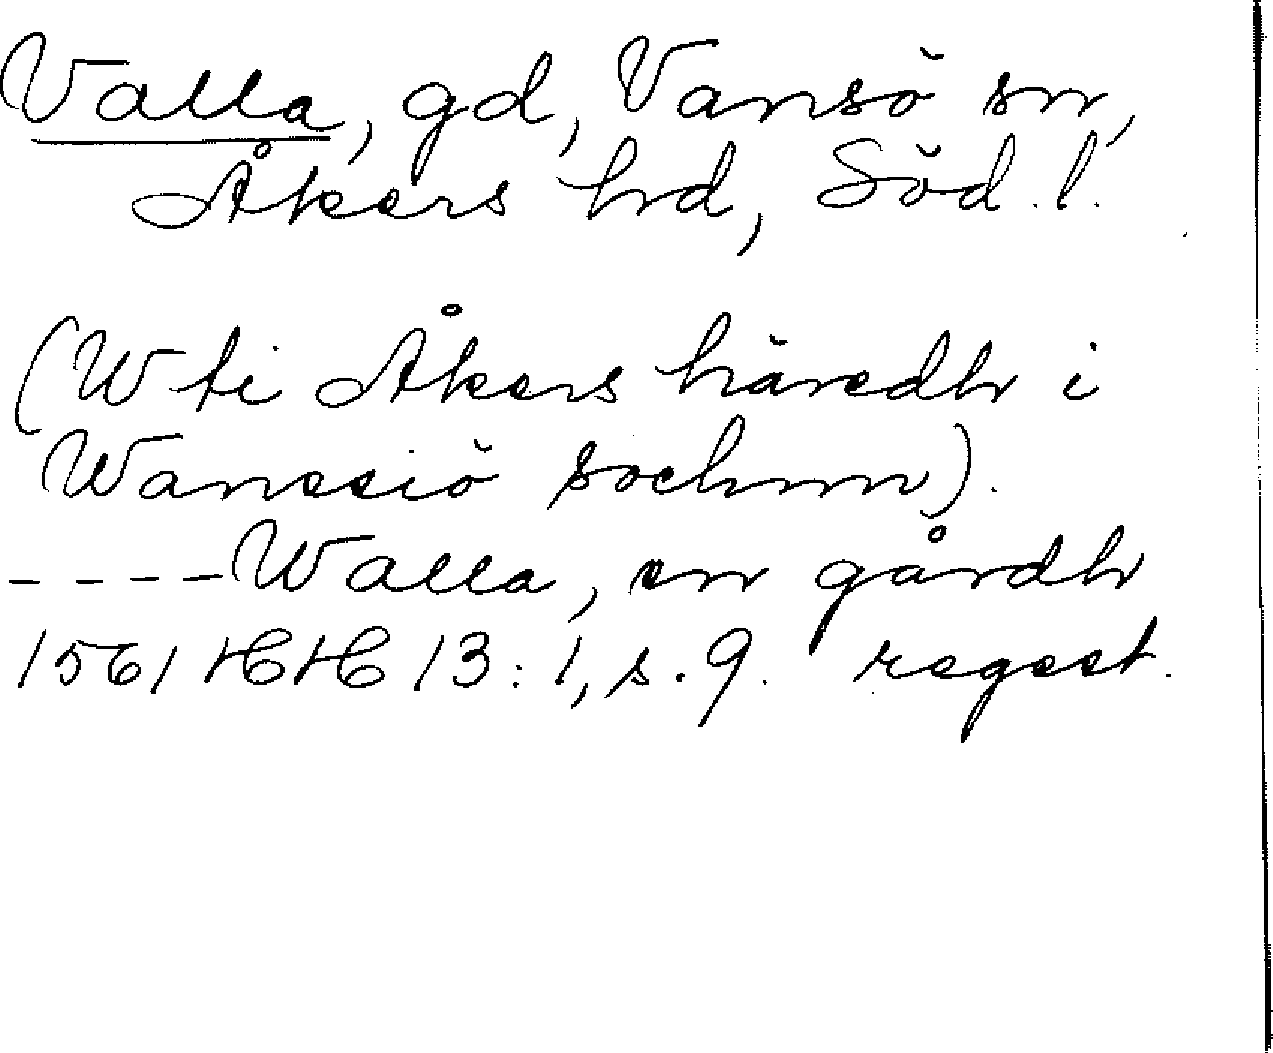 Valla, gd, Vansö sn,
Åkers hd, Söd. l.
(Wti Åkers häredh i
Wanssiö sochnn).
----Walla, en gårdh
1561 HH 13:1, s. 9. regest.